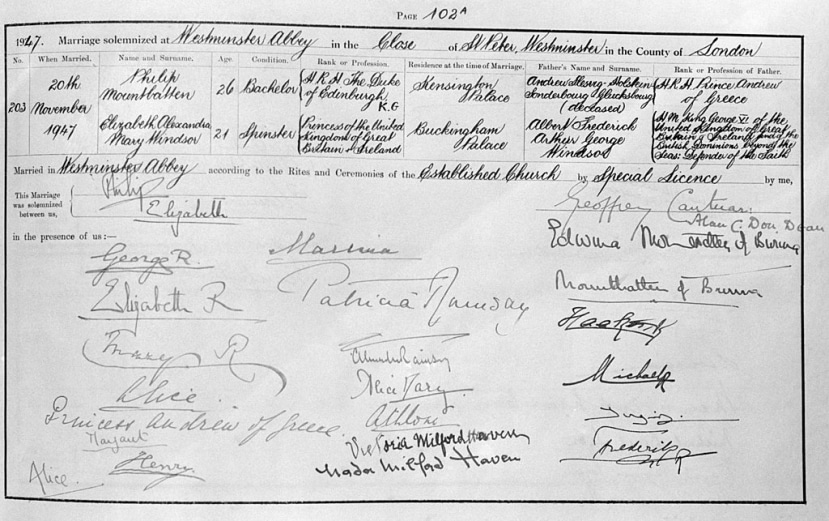 PAGE 102A
1947. Marriage solemnized at Westminster Abbey in the Close of St Peter, Westminster in the County of London
No. When Married. Name and Surname. Age. Condition. Rank or Profession. Residence at the time of Marriage. Father's Name and Surname. Rank or Profession of Father.
203 20th November 1947
Philip Mountbatten
26
Bachelor
H.R.H The Duke of Edinburgh K.G
Kensington Palace
(deceased)
H.R.H Prince Andrew of Greece
Elizabeth Alexandra Mary Windsor
21
Spinster
Princess of the United Kingdom of Great Britain & Ireland
Buckingham Palace
Albert Frederick Arthur George Windsor
H.M. King George VI of the United Kingdom of Great Britain & Ireland and of the British Dominions beyond the Seas: Defender of the Faith
Married in Westminster Abbey according to the Rites and Ceremonies of the Established Church by Special Licence by me,
This Marriage was solemnized between us,
Philip
Elizabeth
Geoffrey Cantuar:
Alan C. Don. Dean
in the presence of us:—
George R.
Marina
Edwina Mountbatten of Burma
Elizabeth R
Patricia Ramsay
Mountbatten of Burma
Mary R
Alexander Ramsay
Haakon R
Alice
Alice Mary
Michael R
Princess Andrew of Greece
Athlone
Margaret
Victoria Milford Haven
Frederik R
Alice.
Henry
Nada Milford Haven